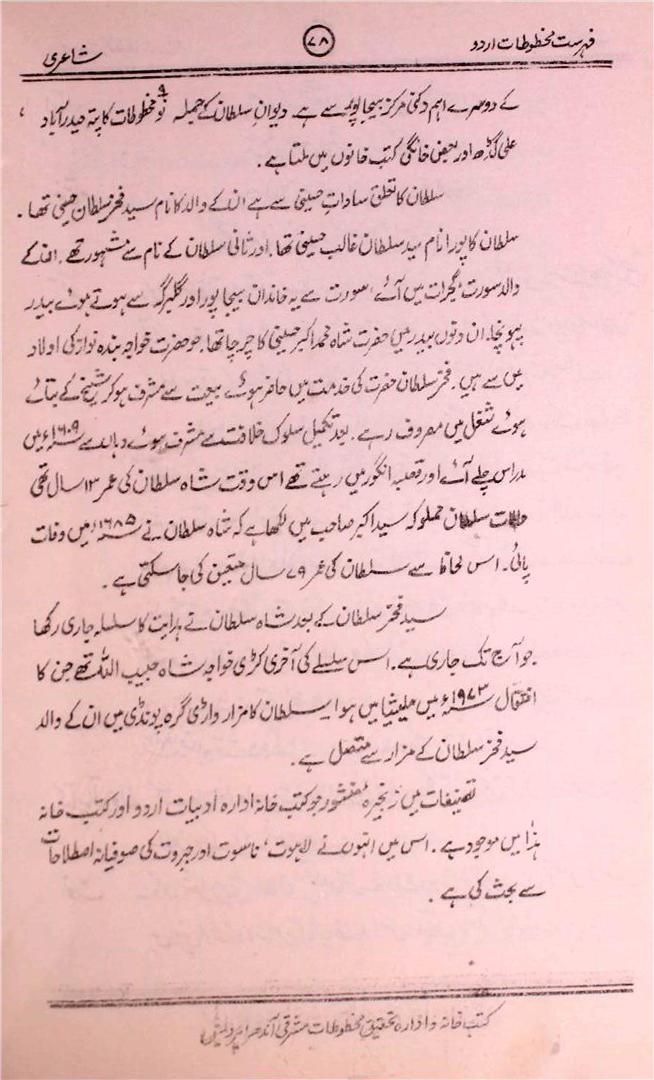 فہرست مخطوطات اردو
۷۸
شاعری
کے دوسرے اہم دکنی مرکز بیجاپور سے ہے۔ دیوانِ سلطان کے جملہ نو ۹ مخطوطات کا پتہ حیدرآباد،
علی گڑھ اور بعض خانگی کتب خانوں میں ملتا ہے۔
سلطان کا تعلق ساداتِ حسینی سے ہے ان کے والد کا نام سید فخر سلطان حسینی تھا۔
سلطان کا پورا نام سید سلطان غالب حسینی تھا۔ اور ثانی سلطان کے نام سے مشہور تھے۔ ان کے
والد سورت، گجرات میں آئے، سورت سے یہ خاندان بیجاپور اور گلبرگہ سے ہوتے ہوئے بیدر
پہونچا۔ ان دنوں بیدر میں حضرت شاہ محمد اکبر حسینی کا چرچا تھا۔ جو حضرت خواجہ بندہ نواز کی اولاد
میں سے ہیں۔ فخر سلطان حضرت کی خدمت میں حاضر ہوئے بیعت سے مشرف ہو کر شیخ کے بتائے
ہوئے شغل میں مصروف رہے۔ بعد تکمیل سلوک خلافت سے مشرف ہوئے وہاں سے ۱۶۰۹ء میں
مدراس چلے آئے اور قصبہ انگور میں رہتے تھے اس وقت شاہ سلطان کی عمر ۱۳ سال تھی
سلطان مملوکہ سید اکبر صاحب میں لکھا ہے کہ شاہ سلطان نے ۱۶۸۵ء میں وفات
پائی۔ اس لحاظ سے سلطان کی عمر ۷۹ سال متعین کی جا سکتی ہے۔
سید فخر سلطان کے بعد شاہ سلطان نے ہدایت کا سلسلہ جاری رکھا
جو آج تک جاری ہے۔ اس سلسلے کی آخری کڑی خواجہ شاہ حبیب اللہ تھے جن کا
انتقال ۱۹۷۳ء میں ملیشیا میں ہوا۔ سلطان کا مزار واڑی گرہ پونڈی میں ان کے والد
سید فخر سلطان کے مزار سے متصل ہے۔
تصنیفات میں زنجیرہ منثور جو کتب خانہ ادارہ ادبیات اردو اور کتب خانہ
ہٰذا میں موجود ہے۔ اس میں انہوں نے لاہوت، ناسوت اور جبروت کی صوفیانہ اصطلاحات
سے بحث کی ہے۔
کتب خانہ و ادارہ تحقیق مخطوطات مشرقی آندھرا پردیش